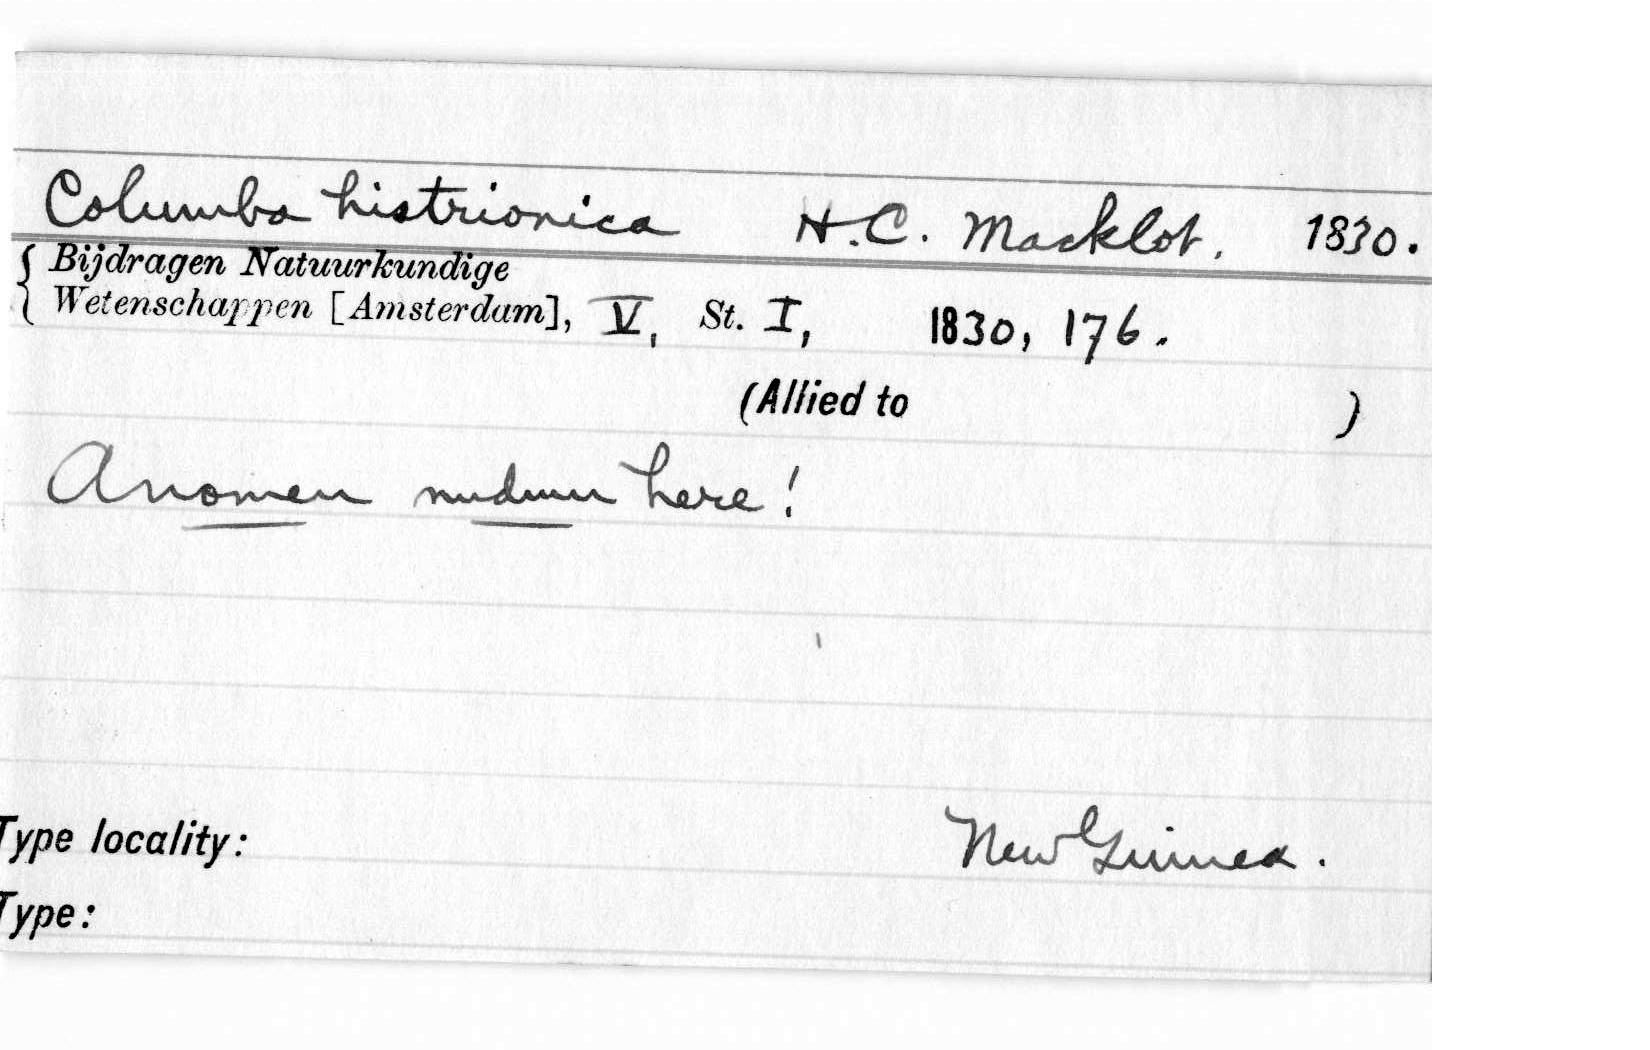 Columba histrionica H.C. Macklot, 1830.
Bijdragen Natuurkundige
Wetenschappen [Amsterdam], V, St. I, 1830, 176.
(Allied to )
A nomen nudum here!
Type locality: New Guinea.
Type: